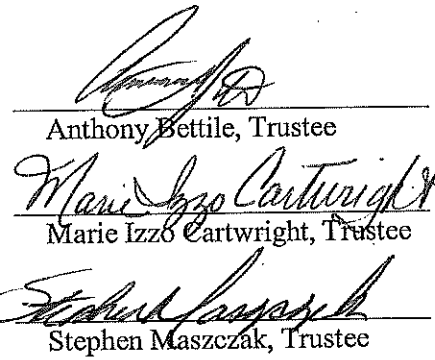 Anthony Bettile, Trustee
Marie Izzo Cartwright
Marie Izzo Cartwright, Trustee
Stephen Maszczak, Trustee